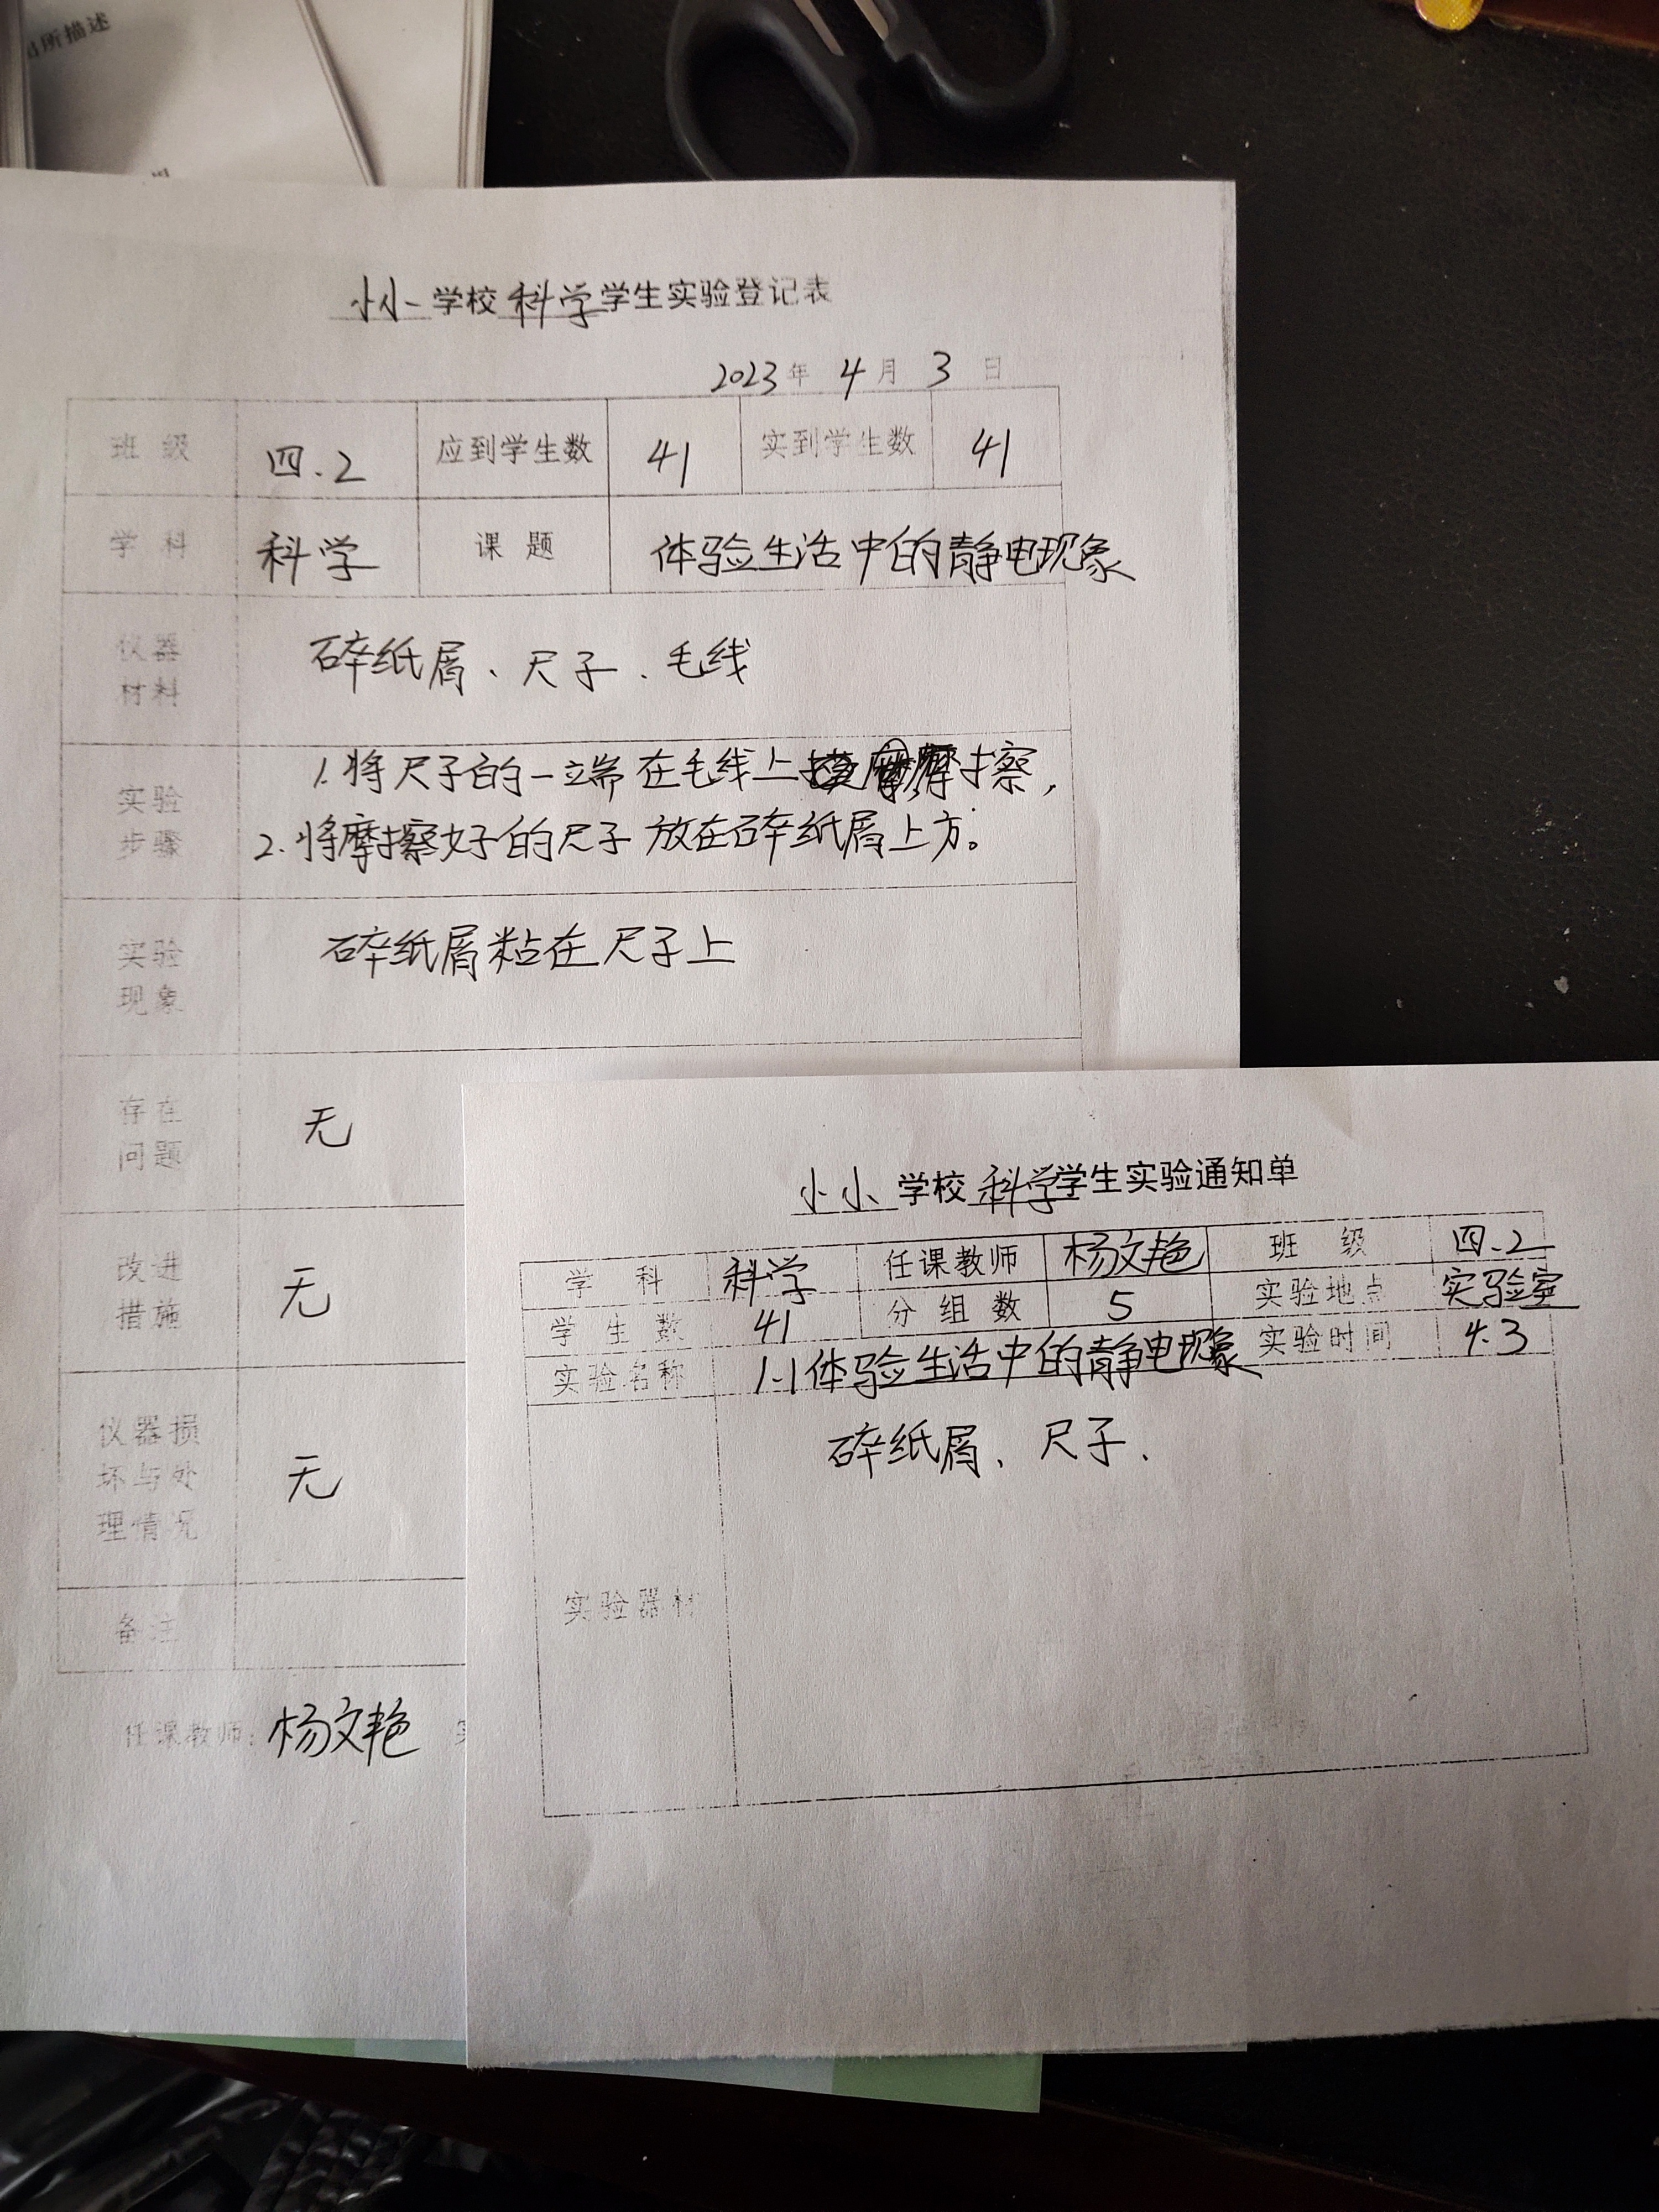 所描述
小小学校科学学生实验登记表
2023年 4月 3日
班级 四.2 应到学生数 41 实到学生数 41
学科 科学 课题 体验生活中的静电现象
仪器材料 碎纸屑、尺子、毛线
实验步骤 1.将尺子的一端在毛线上摩擦,
2.将摩擦好的尺子放在碎纸屑上方。
实验现象 碎纸屑粘在尺子上
存在问题 无
改进措施 无
仪器损坏与处理情况 无
备注
任课教师: 杨文艳
小小学校科学学生实验通知单
学科 科学 任课教师 杨文艳 班级 四.2
学生数 41 分组数 5 实验地点 实验室
实验名称 1.1体验生活中的静电现象 实验时间 4.3
实验器材 碎纸屑、尺子、